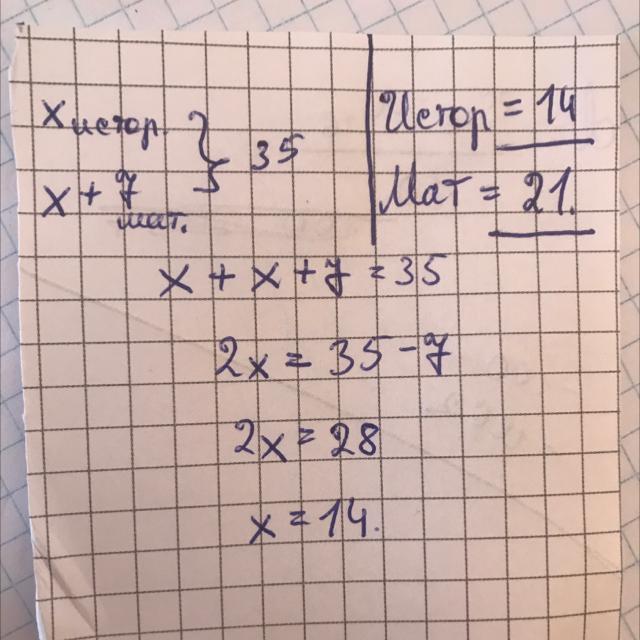 x истор. } 35
x + 7 мат.
Истор = 14
Мат = 21.
x + x + 7 = 35
2x = 35 - 7
2x = 28
x = 14.